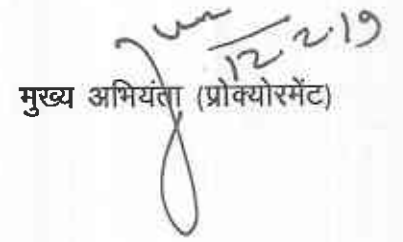 12.2.19
मुख्य अभियंता (प्रोक्योरमेंट)